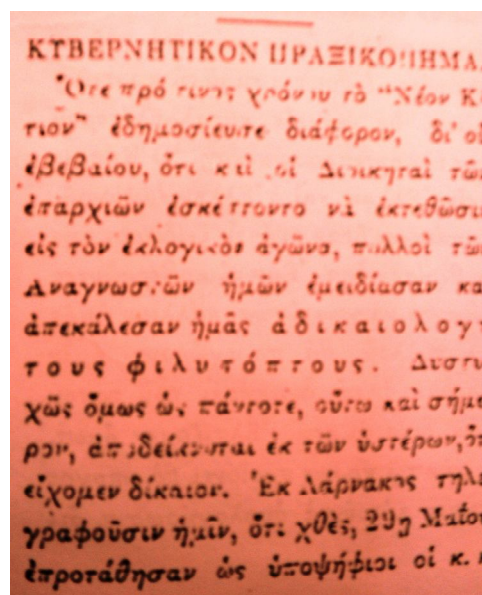 ΚΥΒΕΡΝΗΤΙΚΟΝ ΠΡΑΞΙΚΟΠΗΜΑ.
Ὅτε πρό τινος χρόνου τὸ “Νέον Κ
τιον” ἐδημοσίευσε διάφορον, δι' οὗ
ἐβεβαίου, ὅτι καὶ οἱ Διοικηταὶ τῶν
ἐπαρχιῶν ἐσκέπτοντο νὰ ἐκτεθῶσιν
εἰς τὸν ἐκλογικὸν ἀγῶνα, πολλοὶ τῶν
Ἀναγνωστῶν ἡμῶν ἐμειδίασαν κα
ἀπεκάλεσαν ἡμᾶς ἀδικαιολογή
τους φιλυπόπτους. Δυστυ
χῶς ὅμως ὡς πάντοτε, οὕτω καὶ σήμε
ρον, ἀποδείκνυται ἐκ τῶν ὑστέρων, ὅτι
εἴχομεν δίκαιον. Ἐκ Λάρνακος τηλε
γραφοῦσιν ἡμῖν, ὅτι χθὲς, 29ῃ Μαΐου
ἐπροτάθησαν ὡς ὑποψήφιοι οἱ κ.